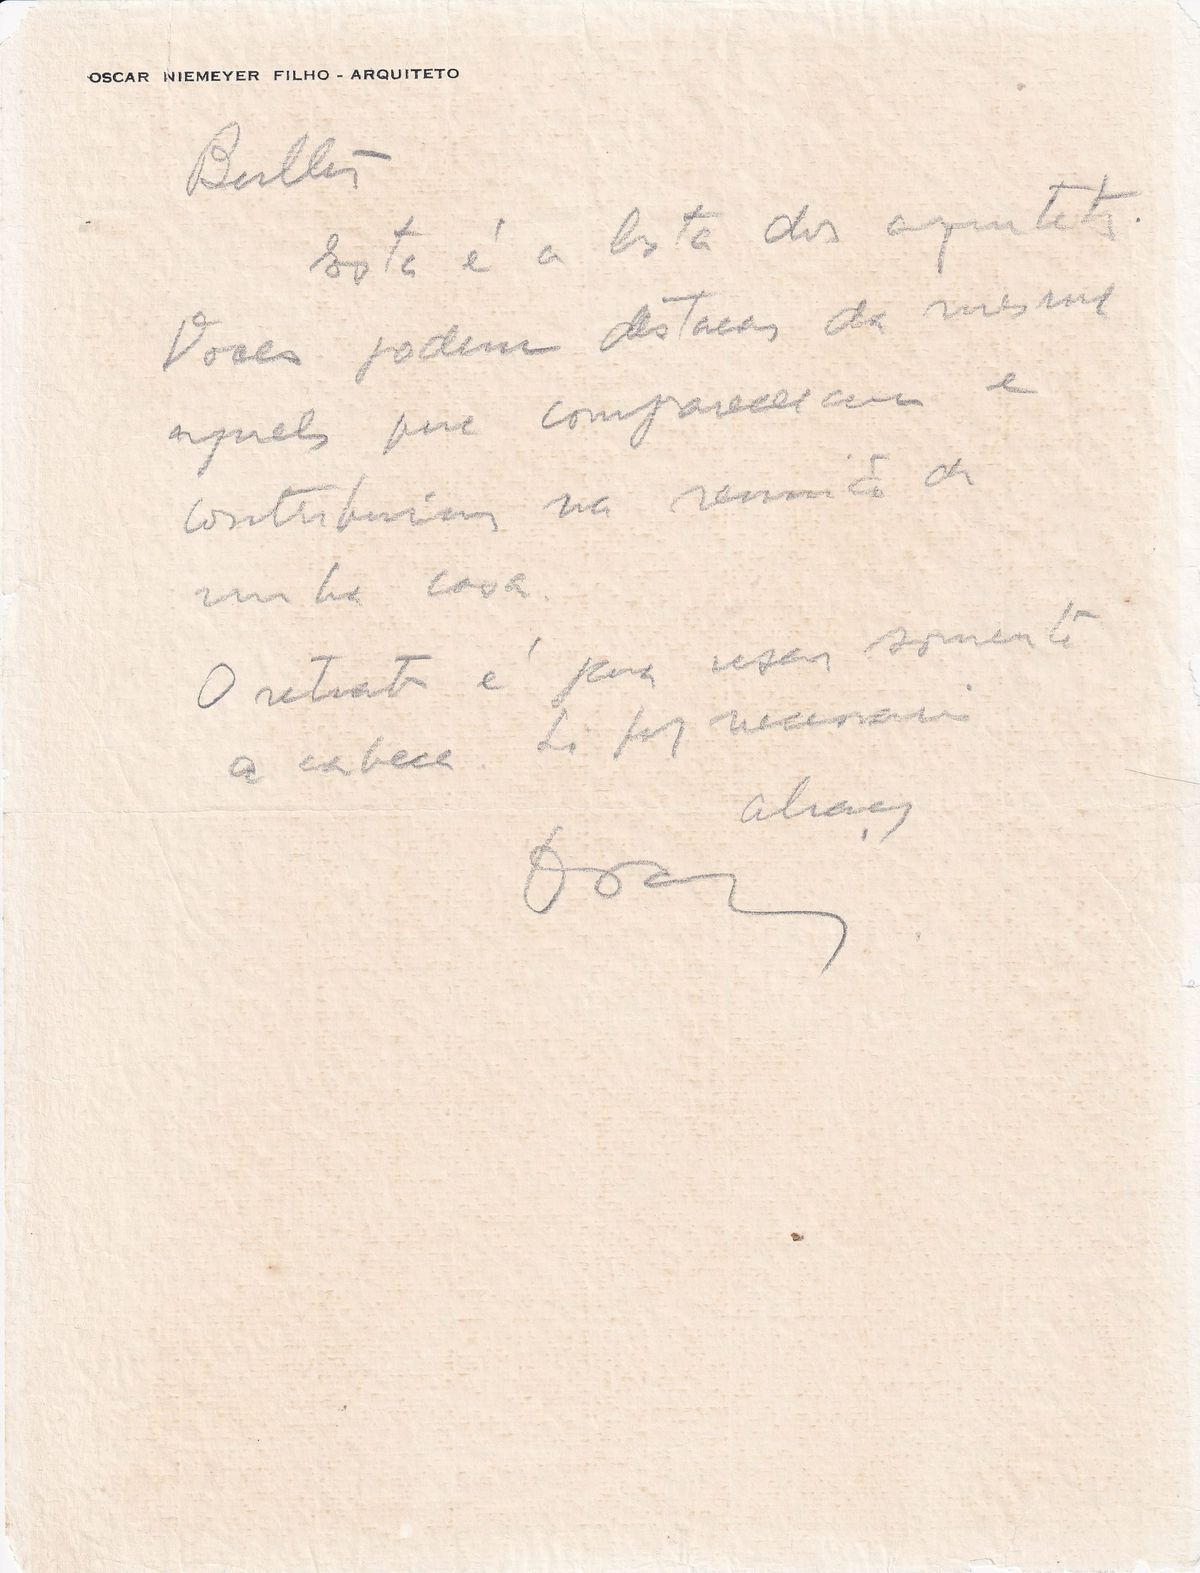 OSCAR NIEMEYER FILHO - ARQUITETO
Esta é a lista dos arquitetos.
Voces podem destacar da mesma
aqueles que compareceram e
contribuiram na reunião da
minha casa.
O retrato é para usar somente
a cabeça si for necessario
abraços
Oscar